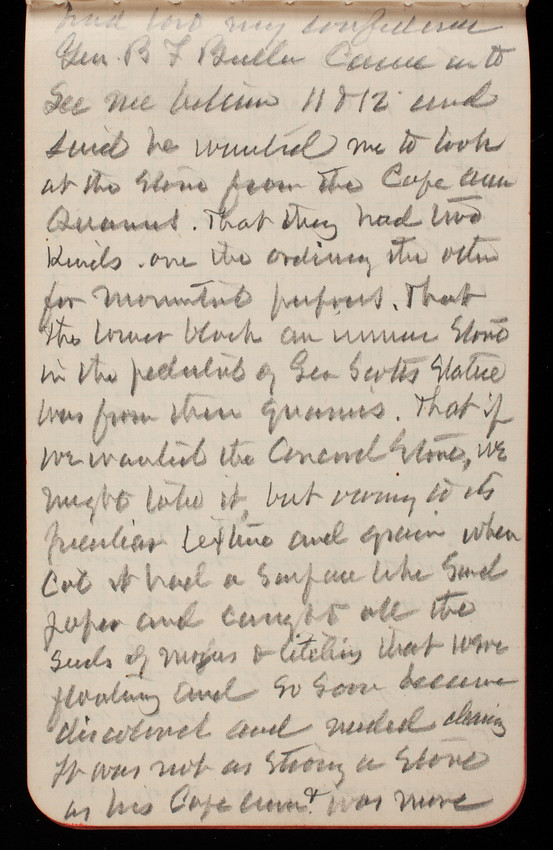 had lost my confidence
Gen. B F Butler came in to
see me between 11 & 12 and
said he wanted me to look
at the stone from the Cape Ann
Quarries. That they had two
kinds. one the ordinary the other
for monumental purposes. That
the lower block an immense stone
in the pedestal of Gen Scotts Statue
was from their quarries. That if
we wanted the Concord Stone, we
might take it, but owing to its
peculiar texture and grain when
cut it had a surface like sand
paper and caught all the
seeds of mosses & litchins that were
floating and so soon became
discolored and needed cleaning
It was not as strong a stone
as his Cape Ann & was more